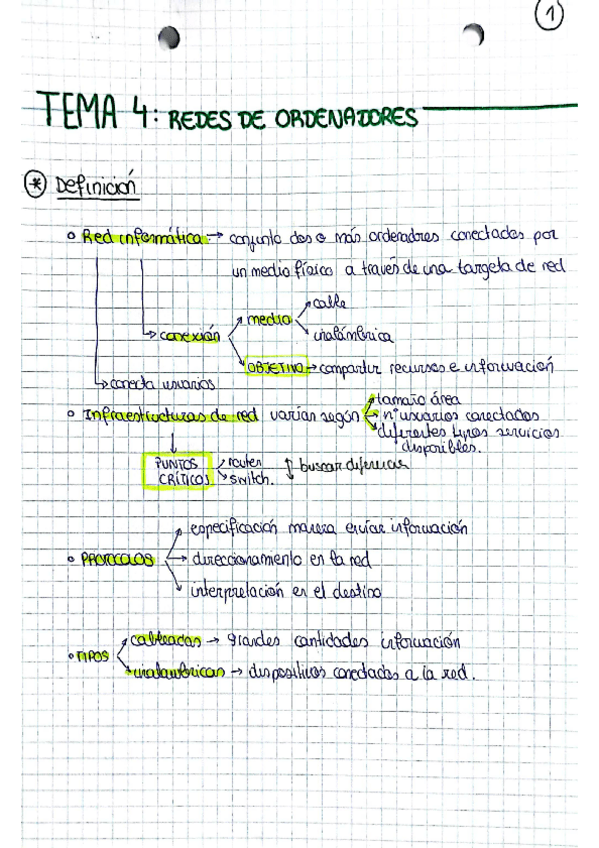 1
TEMA 4: REDES DE ORDENADORES
* Definición
Red informática → conjunto dos o más ordenadores conectados por
un medio físico a través de una targeta de red
cable
medio
conexión
inalámbrica
OBJETIVO → compartir recursos e información
conecta usuarios
tamaño área
Infraestructuras de red varían según nº usuarios conectados
diferentes tipos servicios
disponibles.
PUNTOS CRÍTICOS router
switch.
buscar diferencias
especificación manera enviar información
PROTOCOLOS → direccionamiento en la red
interpretación en el destino
cableadas → grandes cantidades información
TIPOS
inalambricas → dispositivos conectados a la red.